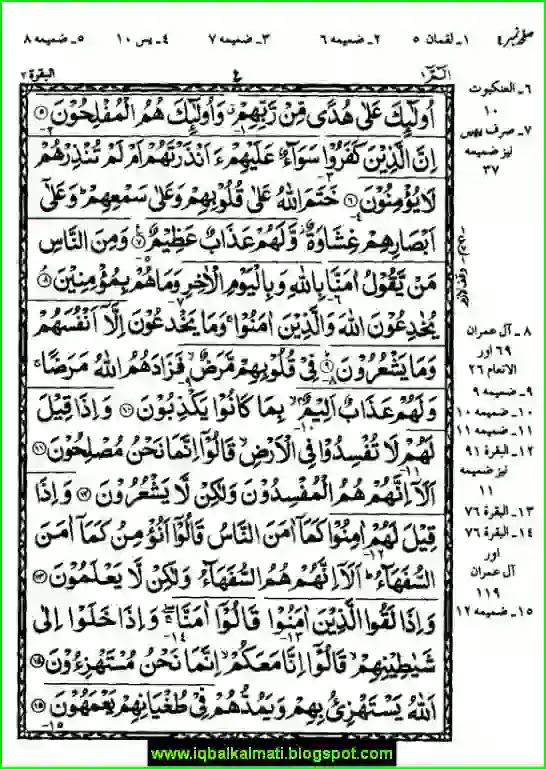 صفحہ نمبر ٤ ١۔ لقمان ٥ ٢۔ ضمیمہ ٦ ٣۔ ضمیمہ ٧ ٤۔ یس ١٠ ٥۔ ضمیمہ ٨
البقرة ٢ ٤ الٓمّٓ ١
اُولٰٓئِكَ عَلٰى هُدًى مِّنْ رَّبِّهِمْ وَاُولٰٓئِكَ هُمُ الْمُفْلِحُوْنَ ٥
اِنَّ الَّذِيْنَ كَفَرُوْا سَوَآءٌ عَلَيْهِمْ ءَاَنْذَرْتَهُمْ اَمْ لَمْ تُنْذِرْهُمْ
لَا يُؤْمِنُوْنَ ٦ خَتَمَ اللّٰهُ عَلٰى قُلُوْبِهِمْ وَعَلٰى سَمْعِهِمْ ؕ وَعَلٰٓى
اَبْصَارِهِمْ غِشَاوَةٌ وَّلَهُمْ عَذَابٌ عَظِيْمٌ ٧ وَمِنَ النَّاسِ
مَنْ يَّقُوْلُ اٰمَنَّا بِاللّٰهِ وَبِالْيَوْمِ الْاٰخِرِ وَمَا هُمْ بِمُؤْمِنِيْنَ ٨
يُخٰدِعُوْنَ اللّٰهَ وَالَّذِيْنَ اٰمَنُوْا ۚ وَمَا يَخْدَعُوْنَ اِلَّآ اَنْفُسَهُمْ
وَمَا يَشْعُرُوْنَ ٩ فِيْ قُلُوْبِهِمْ مَّرَضٌ ۙ فَزَادَهُمُ اللّٰهُ مَرَضًا ۚ
وَلَهُمْ عَذَابٌ اَلِيْمٌ ۙ بِمَا كَانُوْا يَكْذِبُوْنَ ١٠ وَاِذَا قِيْلَ
لَهُمْ لَا تُفْسِدُوْا فِي الْاَرْضِ ۙ قَالُوْٓا اِنَّمَا نَحْنُ مُصْلِحُوْنَ ١١
اَلَآ اِنَّهُمْ هُمُ الْمُفْسِدُوْنَ وَلٰكِنْ لَّا يَشْعُرُوْنَ ١٢ وَاِذَا
قِيْلَ لَهُمْ اٰمِنُوْا كَمَآ اٰمَنَ النَّاسُ قَالُوْٓا اَنُؤْمِنُ كَمَآ اٰمَنَ
السُّفَهَآءُ ؕ اَلَآ اِنَّهُمْ هُمُ السُّفَهَآءُ وَلٰكِنْ لَّا يَعْلَمُوْنَ ١٣
وَاِذَا لَقُوا الَّذِيْنَ اٰمَنُوْا قَالُوْٓا اٰمَنَّا ۚ وَاِذَا خَلَوْا اِلٰى
شَيٰطِيْنِهِمْ ۙ قَالُوْٓا اِنَّا مَعَكُمْ ۙ اِنَّمَا نَحْنُ مُسْتَهْزِءُوْنَ ١٤
اَللّٰهُ يَسْتَهْزِئُ بِهِمْ وَيَمُدُّهُمْ فِيْ طُغْيَانِهِمْ يَعْمَهُوْنَ ١٥
٦۔ العنکبوت
١٠
٧۔ صرف یہیں
نیز ضمیمہ
٣٧
٨۔ آل عمران
٦٩ اور
الانعام ٢٦
٩۔ ضمیمہ ٩
١٠۔ ضمیمہ ١٠
١١۔ ضمیمہ ١١
١٢۔ البقرة ٩١
نیز ضمیمہ
١١
١٣۔ البقرة ٧٦
١٤۔ البقرة ٧٦
اور
آل عمران
١١٩
١٥۔ ضمیمہ ١٢
www.iqbalkalmati.blogspot.com